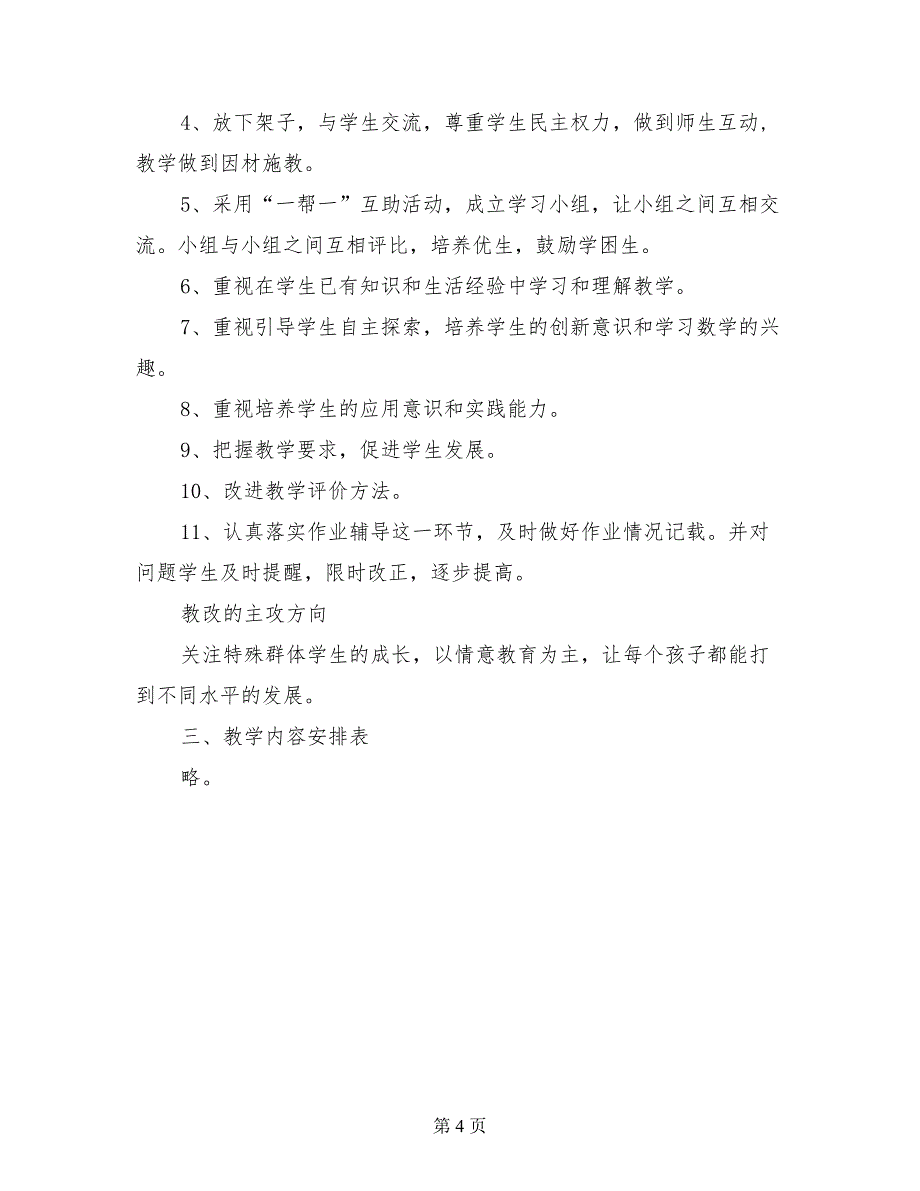 4、放下架子，与学生交流，尊重学生民主权力，做到师生互动，
教学做到因材施教。
5、采用“一帮一”互助活动，成立学习小组，让小组之间互相交
流。小组与小组之间互相评比，培养优生，鼓励学困生。
6、重视在学生已有知识和生活经验中学习和理解教学。
7、重视引导学生自主探索，培养学生的创新意识和学习数学的兴
趣。
8、重视培养学生的应用意识和实践能力。
9、把握教学要求，促进学生发展。
10、改进教学评价方法。
11、认真落实作业辅导这一环节，及时做好作业情况记载。并对
问题学生及时提醒，限时改正，逐步提高。
教改的主攻方向
关注特殊群体学生的成长，以情意教育为主，让每个孩子都能打
到不同水平的发展。
三、教学内容安排表
略。
第 4 页